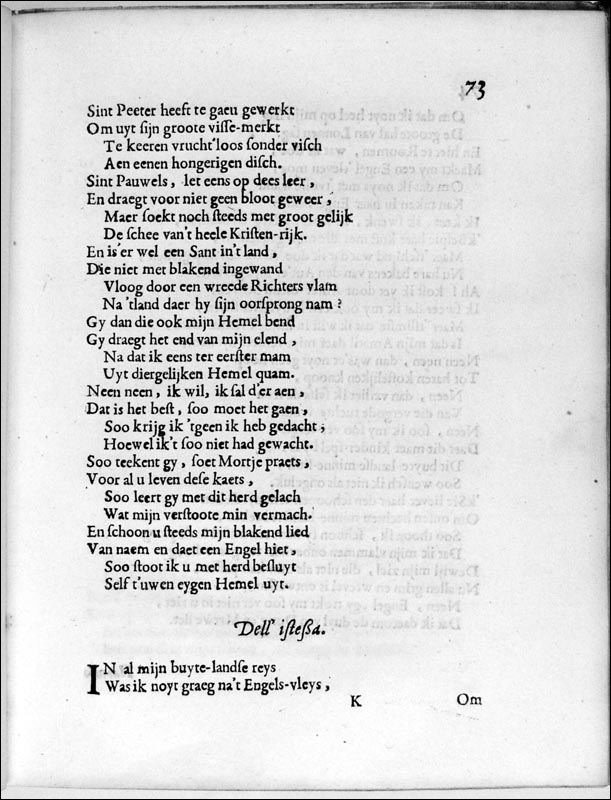 73
Sint Peeter heeft te gaeu gewerkt
Om uyt sijn groote visse-merkt
Te keeren vrucht'loos sonder visch
Aen eenen hongerigen disch.
Sint Pauwels, let eens op dees leer,
En draegt voor niet geen bloot geweer,
Maer soekt noch steeds met groot gelijk
De schee van't heele Kristen-rijk.
En is'er wel een Sant in't land,
Die niet met blakend ingewand
Vloog door een wreede Richters vlam
Na 'tland daer hy sijn oorsprong nam?
Gy dan die ook mijn Hemel bend
Gy draegt het end van mijn elend,
Na dat ik eens ter eerster mam
Uyt diergelijken Hemel quam.
Neen neen, ik wil, ik sal d'er aen,
Dat is het best, soo moet het gaen,
Soo krijg ik 'tgeen ik heb gedacht;
Hoewel ik't soo niet had gewacht.
Soo teekent gy, soet Mortje praets,
Voor al u leven dese kaets,
Soo leert gy met dit herd gelach
Wat mijn verstoote min vermach.
En schoon u steeds mijn blakend lied
Van naem en daet een Engel hiet,
Soo stoot ik u met herd besluyt
Self t'uwen eygen Hemel uyt.
Dell' istessa.
IN al mijn buyte-landse reys
Was ik noyt graeg na't Engels-vleys,
K Om